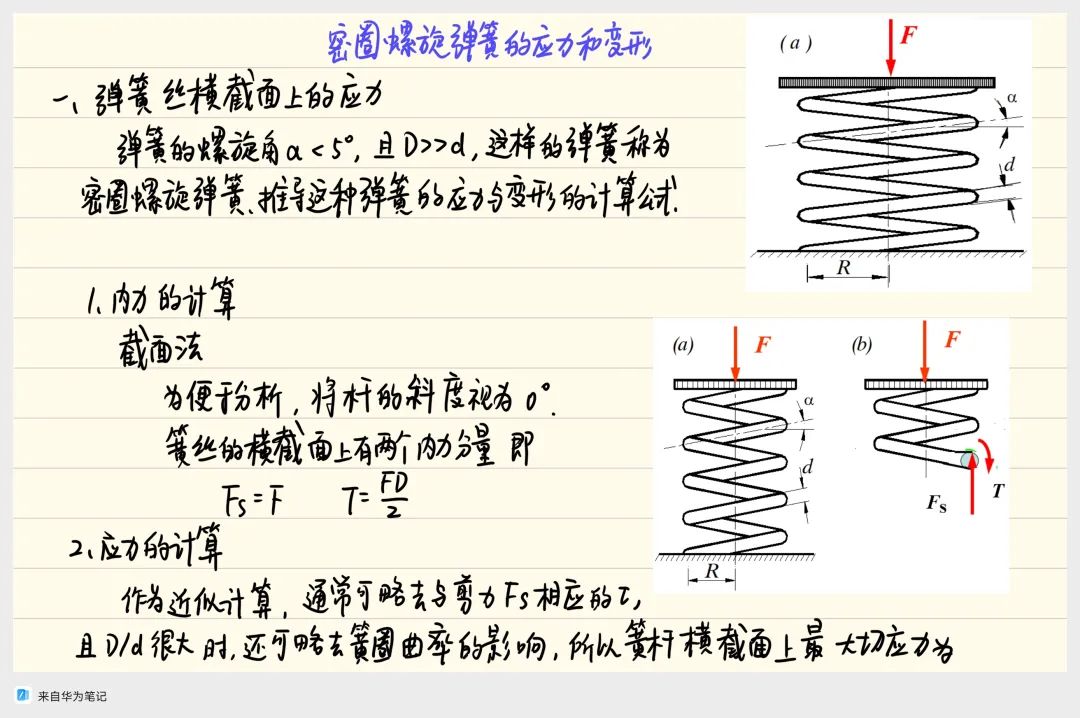 密圈螺旋弹簧的应力和变形
一、弹簧丝横截面上的应力
弹簧的螺旋角α<5°,且D>>d,这样的弹簧称为
密圈螺旋弹簧、推导这种弹簧的应力与变形的计算公式.
(a)
F
α
d
R
1、内力的计算
截面法
为便于分析,将杆的斜度视为0°.
簧丝的横截面上有两个内力分量 即
Fs=F T=FD/2
(a)
F
α
d
R
(b)
F
Fs
T
2、应力的计算
作为近似计算,通常可略去与剪力Fs相应的τ,
且D/d很大时,还可略去簧圈曲率的影响,所以簧杆横截面上最大切应力为
来自华为笔记